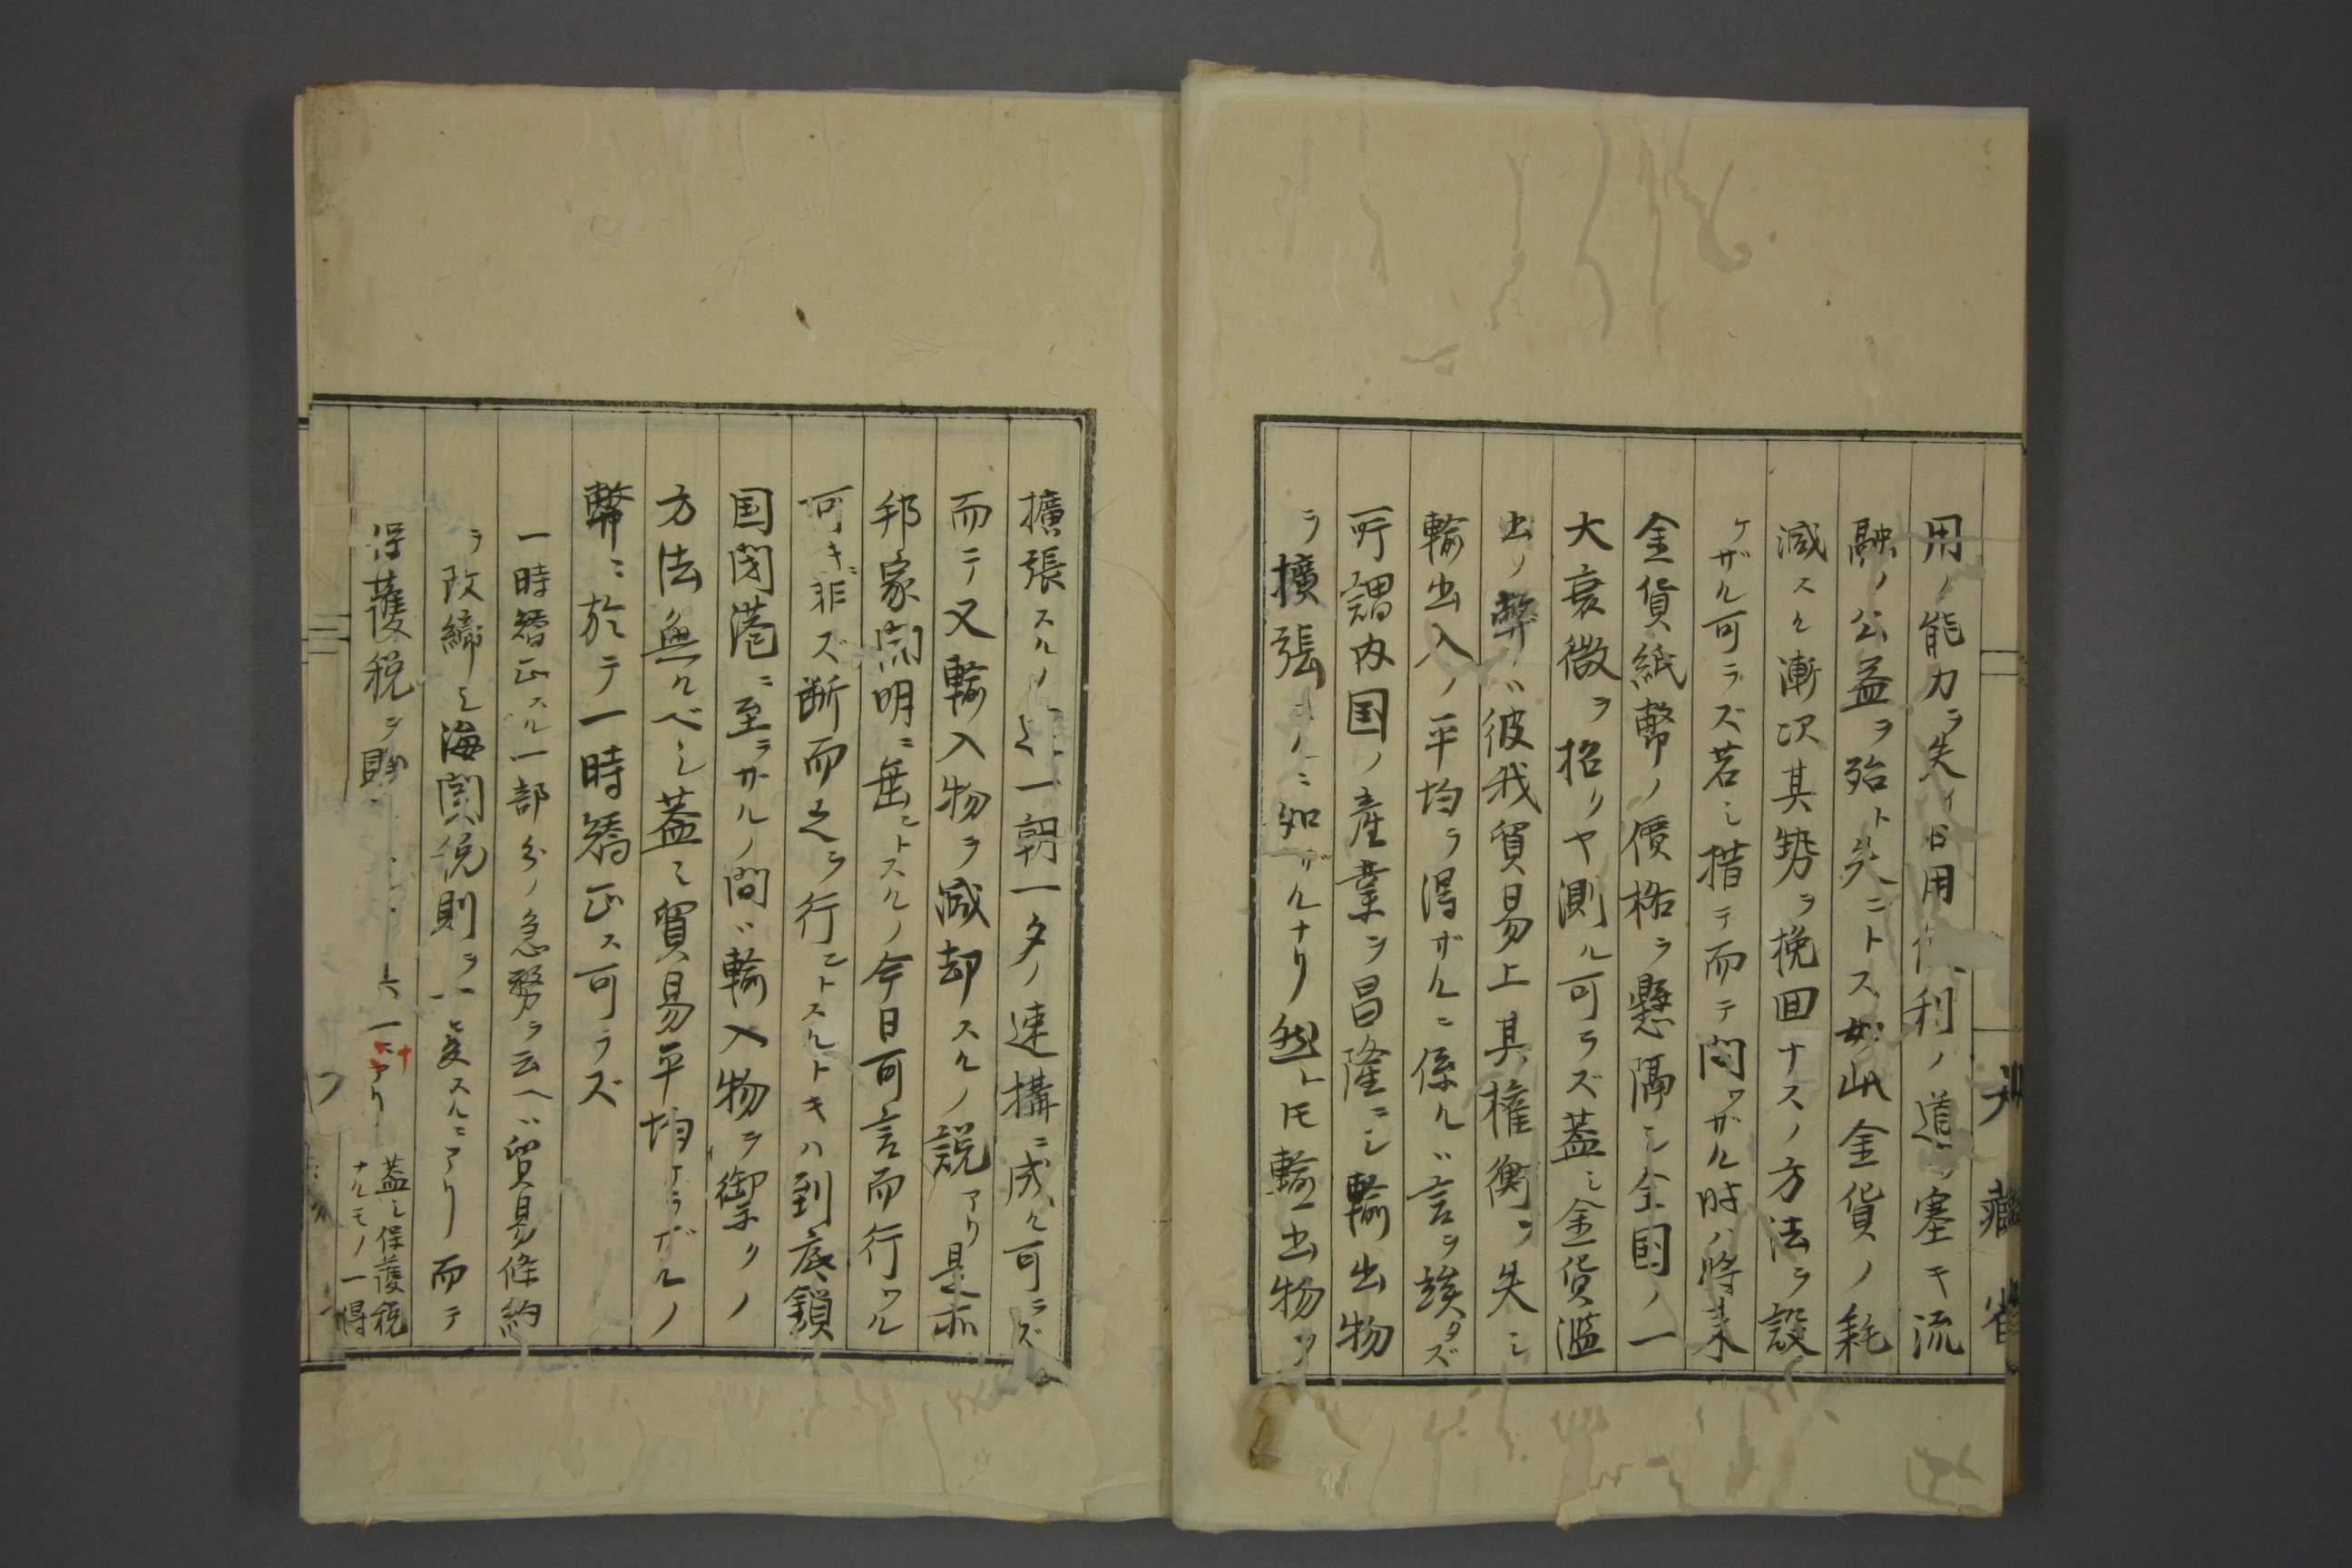 大藏省
用ノ能力ヲ失イ日用 利ノ道ヲ塞キ流
融ノ公益ヲ殆ト失ニトス如此金貨ノ耗
減スル漸次其勢ヲ挽回ナスノ方法ヲ設
ケザル可ラズ若シ措テ而テ問ワザル時ハ将来
金貨紙幣ノ價格ヲ懸隔シ全国ノ一
大衰微ヲ招リヤ測ル可ラズ蓋シ金貨濫
出ノ弊バ彼我貿易上其權衡ヲ失シ
輸出入ノ平均ヲ得ザルニ係ルバ言ヲ竢タズ
所謂内国ノ産業ヲ昌隆ニシ輸出物
ヲ擴張 ニ如ザルナリ然トモ輸出物ヲ
擴張スルノ 一朝一夕ノ速搆ニ成ル可ラズ
而ニテ又輸入物ヲ減却スルノ説アリ是亦
邦家開明ニ垂ニトスルノ今日可言而行ワル
可キニ非ズ断而之ヲ行ニトスルトキハ到底鎖
国閉港ニ至ラザルノ間バ輸入物ヲ禦クノ
方法無ルベシ蓋シ貿易平均ケラザルノ
弊ニ於テ一時矯正ス可ラズ
一時矯正スル一部分ノ急務ヲ云ヘバ貿易條約
ヲ改締シ海関税則ヲ一ト変スルニアリ而テ
保護税ヲ賦 一ニアリ
蓋シ保護税
ナルモノ一得